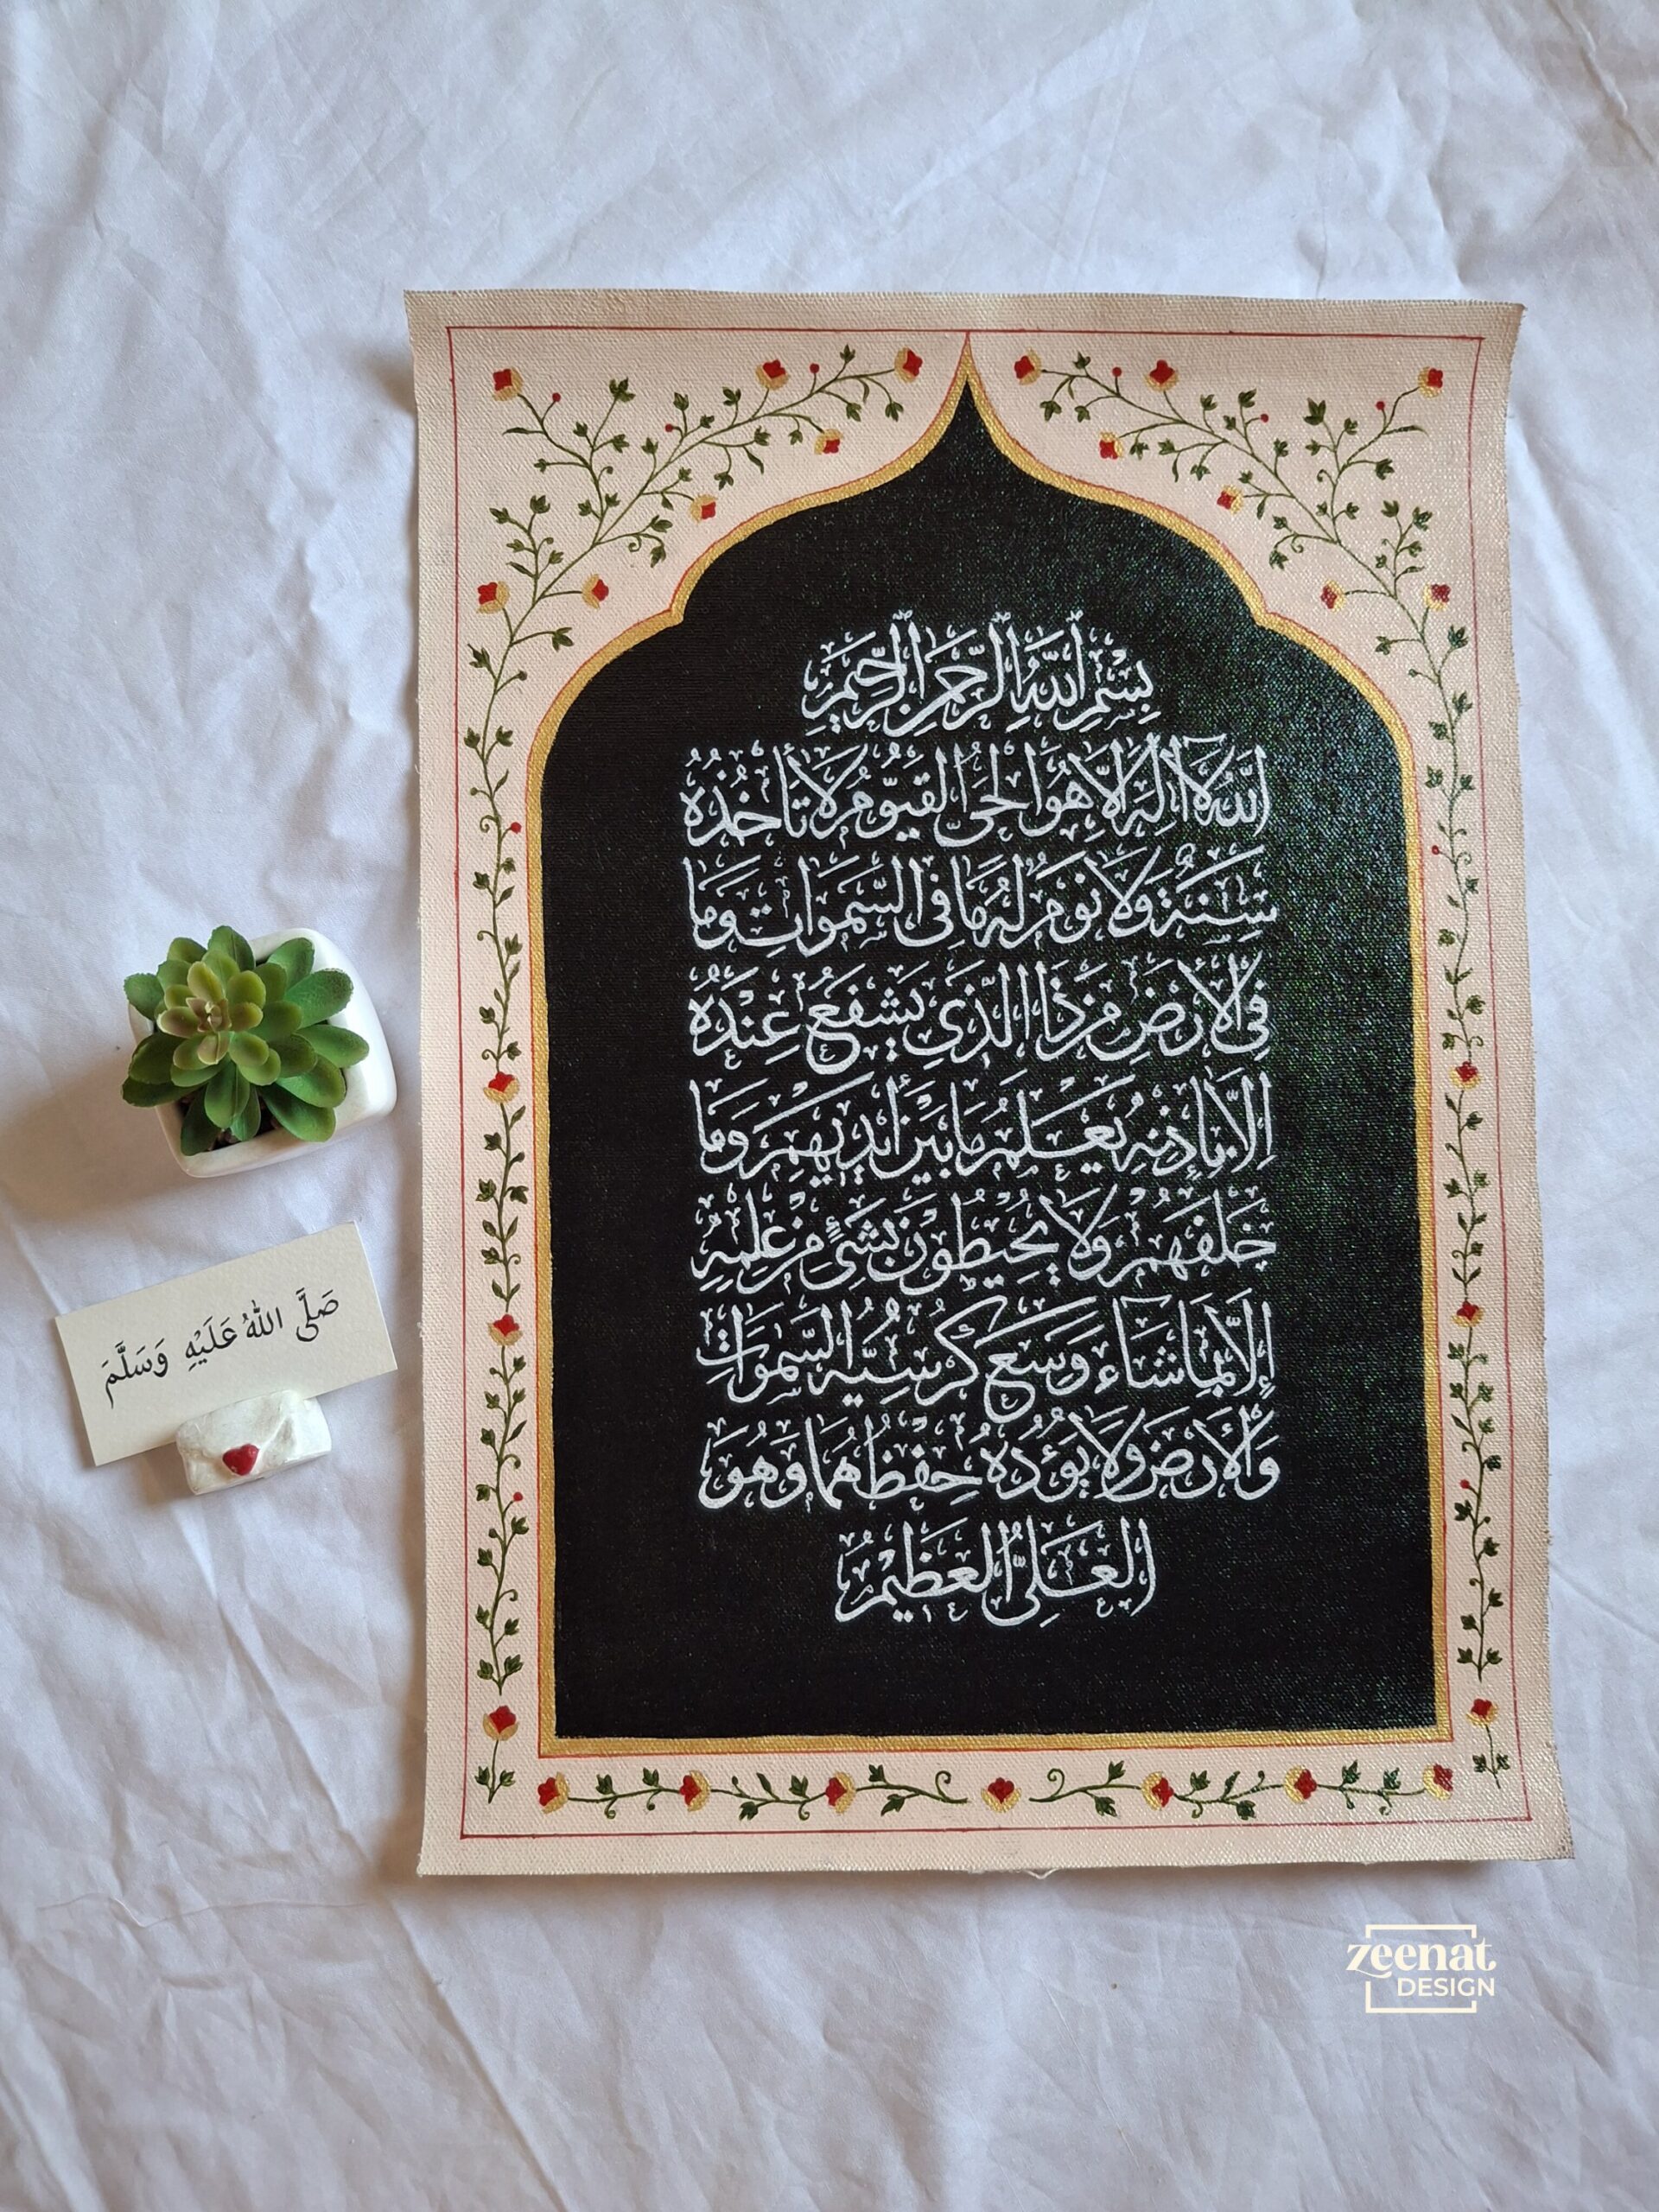 بِسْمِ اللهِ الرَّحْمٰنِ الرَّحِيْمِ
اَللهُ لَا اِلٰهَ اِلَّا هُوَ الْحَىُّ الْقَيُّوْمُ لَا تَأْخُذُهُ
سِنَةٌ وَلَا نَوْمٌ لَهُ مَا فِى السَّمٰوَاتِ وَمَا
فِى الْاَرْضِ مَنْ ذَا الَّذِى يَشْفَعُ عِنْدَهُ
اِلَّا بِاِذْنِهِ يَعْلَمُ مَا بَيْنَ اَيْدِيْهِمْ وَمَا
خَلْفَهُمْ وَلَا يُحِيْطُوْنَ بِشَىْءٍ مِنْ عِلْمِهِ
إِلَّا بِمَا شَاءَ وَسِعَ كُرْسِيُّهُ السَّمٰوَاتِ
وَالْأَرْضَ وَلَا يَؤُدُهُ حِفْظُهُمَا وَهُوَ
الْعَلِىُّ الْعَظِيْمُ
صَلَّى اللهُ عَلَيْهِ وَسَلَّمَ
zeenat
DESIGN